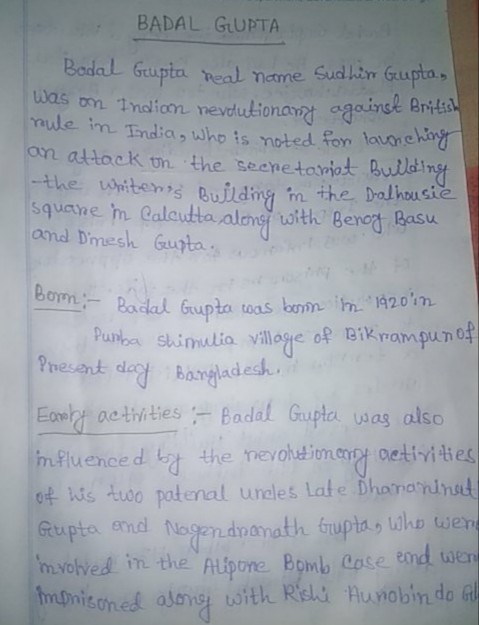 BADAL GUPTA
Badal Gupta real name Sudhir Gupta,
was an Indian revolutionary against British
rule in India, who is noted for launching
an attack on the secretariat Building
-the writer's Building in the Dalhousie
square in Calcutta, along with Benoy Basu
and Dinesh Gupta.
Born:- Badal Gupta was born in 1920 in
Purba shimulia village of Bikrampur of
Present day Bangladesh.
Early activities :- Badal Gupta was also
influenced by the revolutionary activities
of his two patenal uncles Late Dharaninat
Gupta and Nagendranath Gupta, who wer
involved in the Alipore Bomb Case and wer
imprisoned along with Rishi Aurobindo